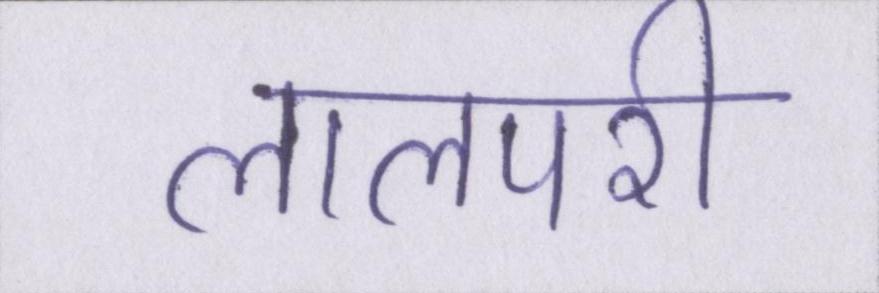 लालपरी